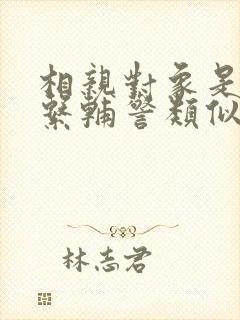 相親對象是
繫輔警類似
林志君